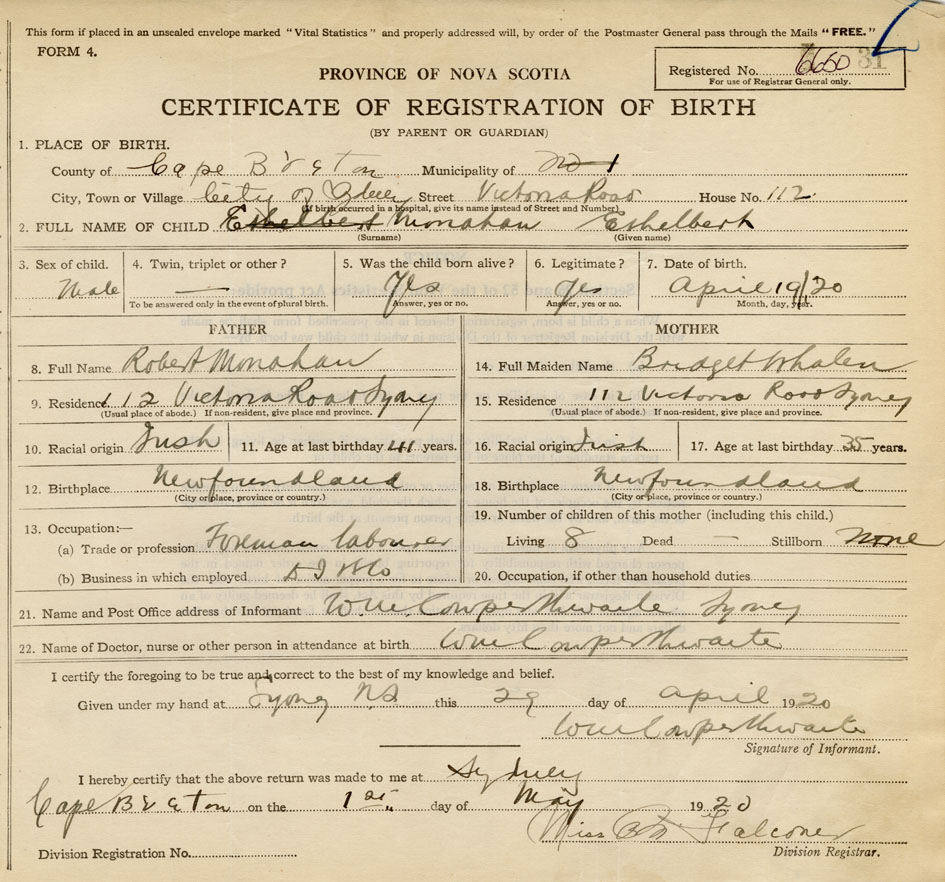 This form if placed in an unsealed envelope marked "Vital Statistics" and properly addressed will, by order of the Postmaster General pass through the Mails "FREE."
FORM 4.
Registered No. 6650 31
For use of Registrar General only.
PROVINCE OF NOVA SCOTIA
CERTIFICATE OF REGISTRATION OF BIRTH
(BY PARENT OR GUARDIAN)
1. PLACE OF BIRTH.
County of Cape Breton Municipality of
City, Town or Village City of Street Victoria Road House No. 112
(If birth occurred in a hospital, give its name instead of Street and Number)
2. FULL NAME OF CHILD Ethelbert Monahan Ethelbert
(Surname) (Given name)
3. Sex of child. 4. Twin, triplet or other? 5. Was the child born alive? 6. Legitimate? 7. Date of birth.
Male — Yes Yes April 19/20
To be answered only in the event of plural birth. Answer, yes or no. Answer, yes or no. Month, day, year.
FATHER
8. Full Name Robert Monahan
9. Residence 112 Victoria Road Sydney
(Usual place of abode.) If non-resident, give place and province.
10. Racial origin Irish 11. Age at last birthday 41 years.
12. Birthplace Newfoundland
(City or place, province or country.)
13. Occupation:—
(a) Trade or profession Foreman labourer
(b) Business in which employed
MOTHER
14. Full Maiden Name Bridget Whalen
15. Residence 112 Victoria Road Sydney
(Usual place of abode.) If non-resident, give place and province.
16. Racial origin Irish 17. Age at last birthday 35 years.
18. Birthplace Newfoundland
(City or place, province or country.)
19. Number of children of this mother (including this child.)
Living 8 Dead — Stillborn None
20. Occupation, if other than household duties
21. Name and Post Office address of Informant Wm Cowperthwaite Sydney
22. Name of Doctor, nurse or other person in attendance at birth Wm Cowperthwaite
I certify the foregoing to be true and correct to the best of my knowledge and belief.
Given under my hand at Sydney N.S this 29 day of April 1920
Wm Cowperthwaite
Signature of Informant.
I hereby certify that the above return was made to me at Sydney
Cape Breton on the 1st day of May 1920
Miss Falconer
Division Registration No.
Division Registrar.